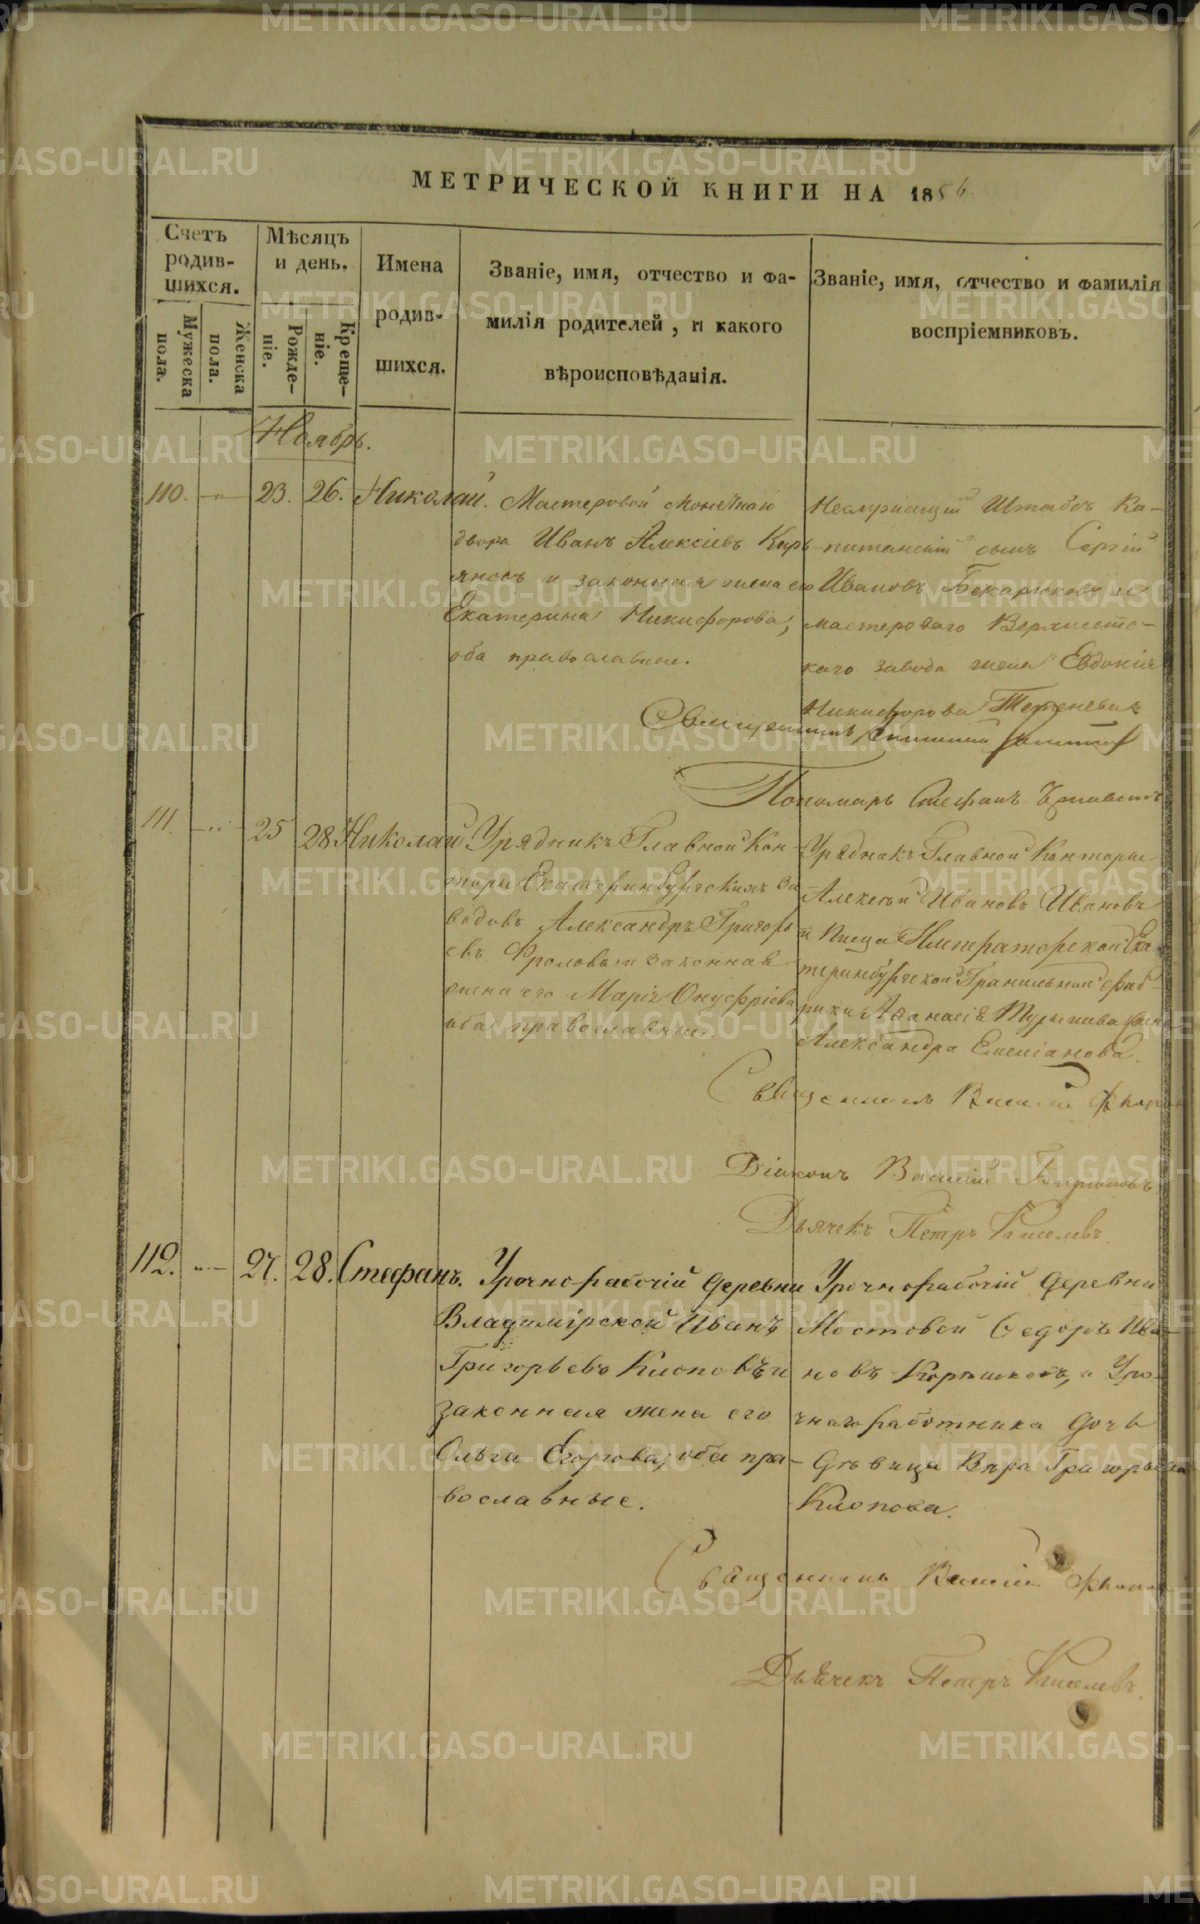 МЕТРИЧЕСКОЙ КНИГИ НА 1856
Счетъ родив-шихся.
Мѣсяцъ и день.
Имена родив-шихся.
Званіе, имя, отчество и фа-
милія родителей, и какого
вѣроисповѣданія.
Званіе, имя, отчество и фамилія
воспріемниковъ.
Мужеска пола.
Женска пола.
Рожде-ніе.
Креще-ніе.
Ноябрь.
110. 23. 26. Николай. Мастеровой Монетнаго
двора Иванъ Алексѣевъ Кирь-
яновъ и законная жена его
Екатерина Никифорова;
оба православные.
Неслужащій Штабсъ Ка-
питанскій сынъ Сергій
Ивановъ и
мастероваго Верхъисетс-
каго завода жена Евдокія
Никифорова
Священникъ
Пономарь Стефанъ
111. 25 28 Николай Урядникъ Главной Кон-
торы Екатеринбургскихъ За
водовъ Александръ Григорь
евъ Фроловъ и законная
жена его Марія Онуфріева
оба православные.
Урядникъ Главной Конторы
Алексѣй Ивановъ Ивановъ
и Писца Императорской Ека
теринбургской Гранильной фаб-
рики Аѳанасія
Александра Емеліанова.
Священникъ Василій
Діаконъ Василій
Дьячекъ Петръ Киселевъ
112. 27. 28. Стефанъ. Урочнорабочій деревни
Владимірской Иванъ
Григорьевъ Клоповъ и
законная жена его
Ольга Егорова; оба пра-
вославные.
Урочнорабочій деревни
Мостовой Ѳедоръ Ива-
новъ и Уро-
чнаго работника дочь
дѣвица Вѣра Григорьева
Клопова.
Священникъ Василій
Дьячекъ Петръ Киселевъ.
METRIKI.GASO-URAL.RU